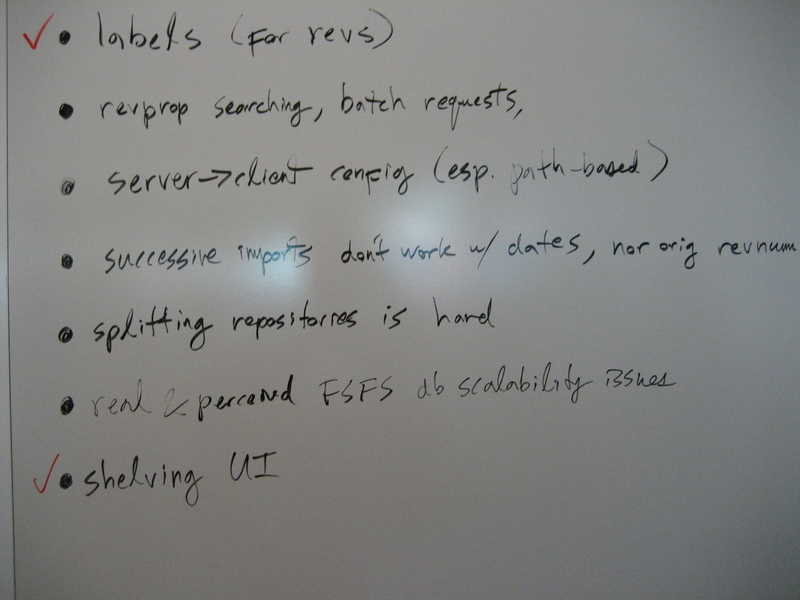 ✓ • labels (for revs)
• revprop searching, batch requests,
• server->client config (esp. path-based)
• successive imports don't work w/ dates, nor orig revnum
• splitting repositories is hard
• real & perceived FSFS db scalability issues
✓ • shelving UI